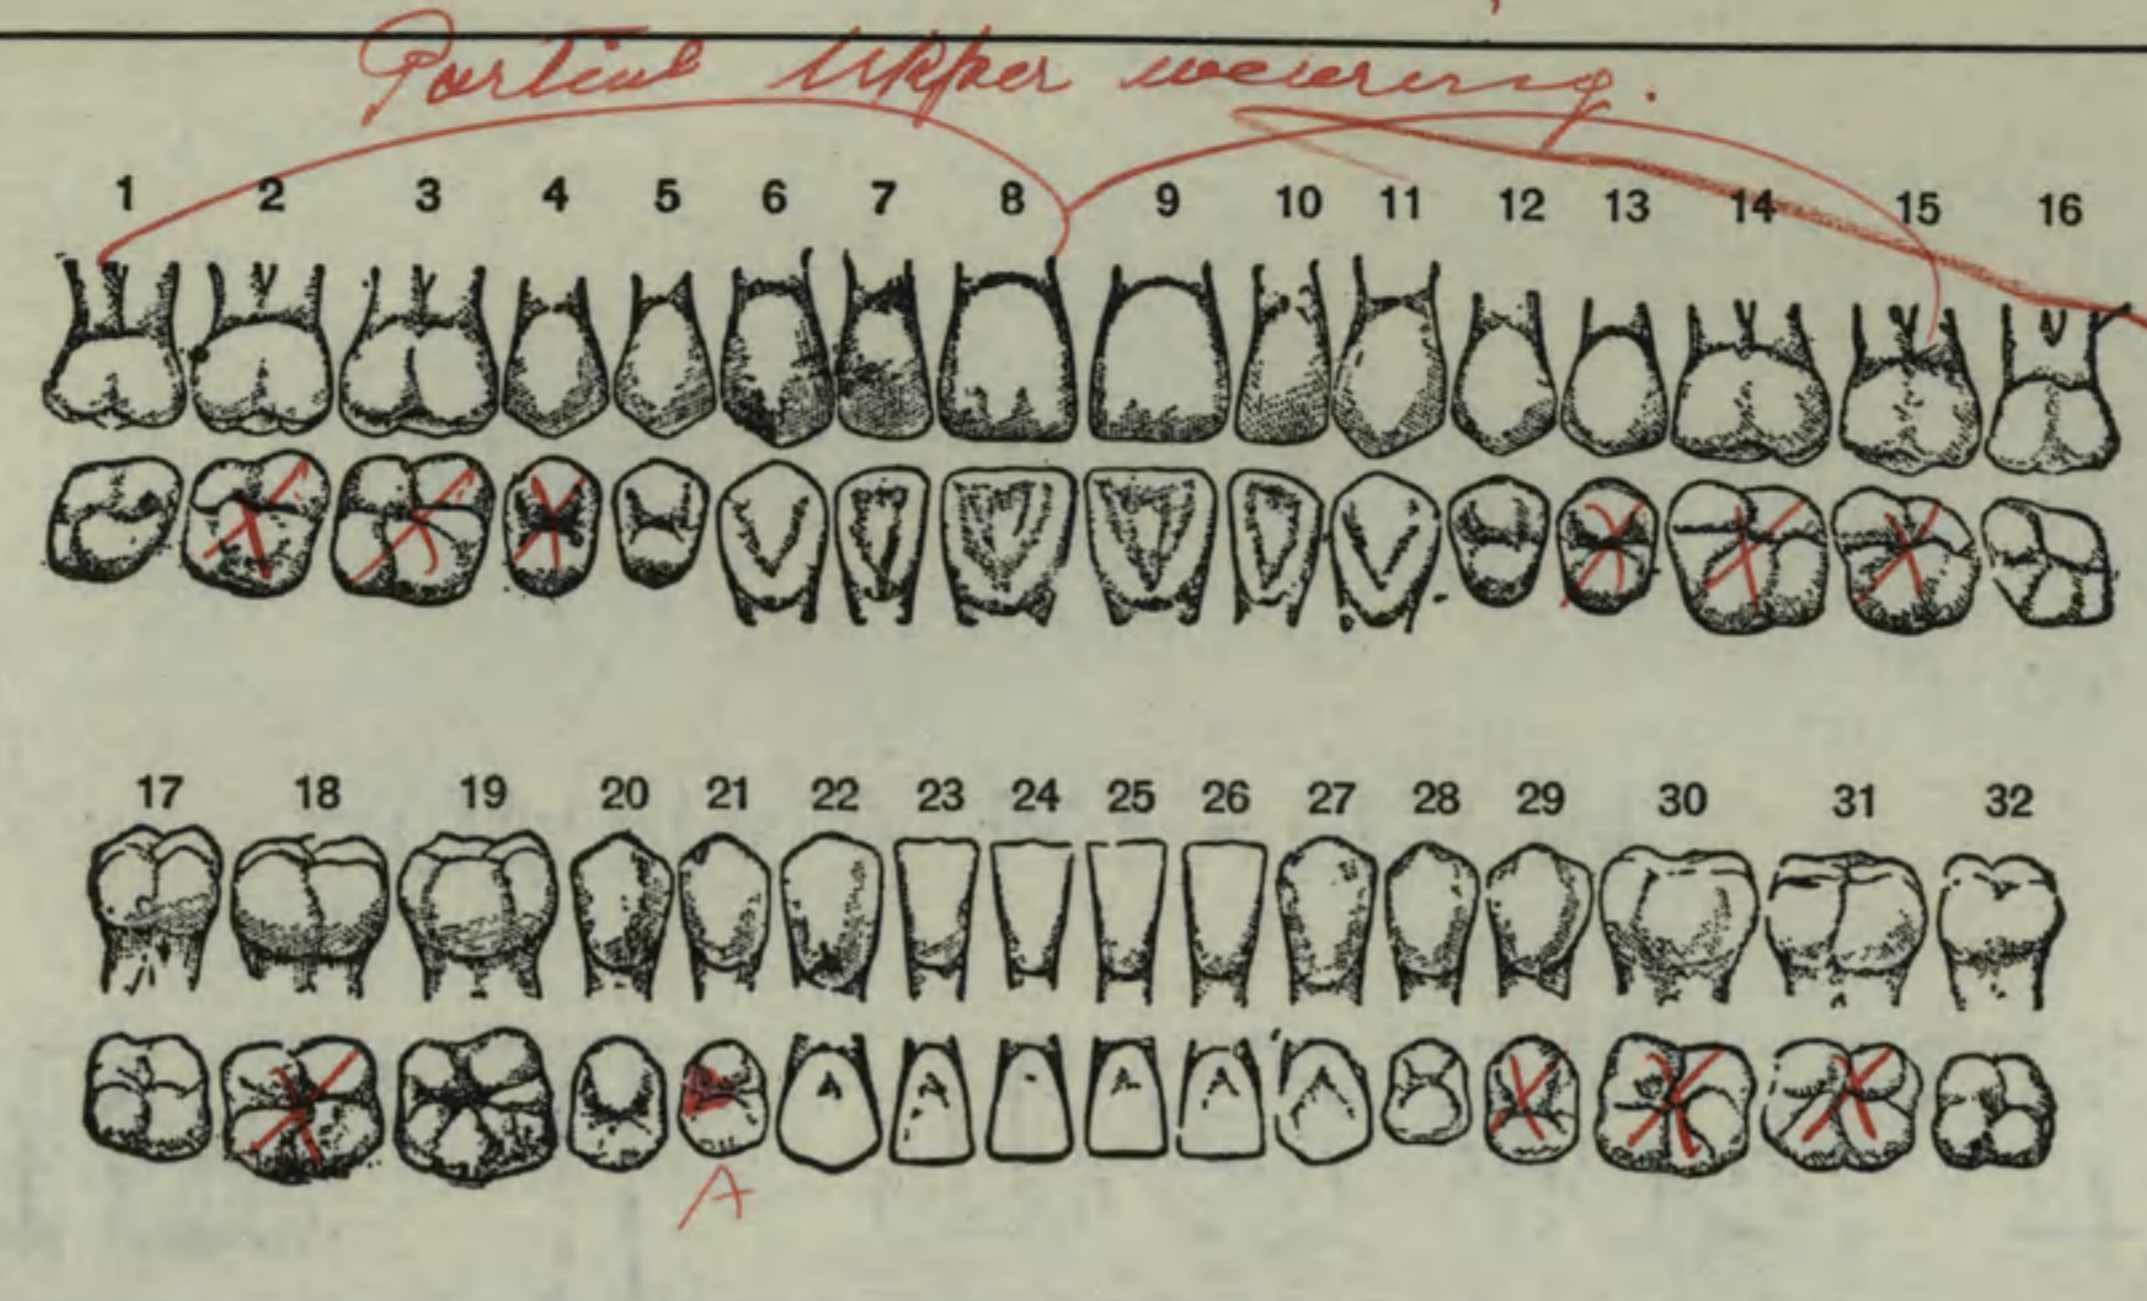 Partial Upper wearing.
1 2 3 4 5 6 7 8 9 10 11 12 13 14 15 16
17 18 19 20 21 22 23 24 25 26 27 28 29 30 31 32
A